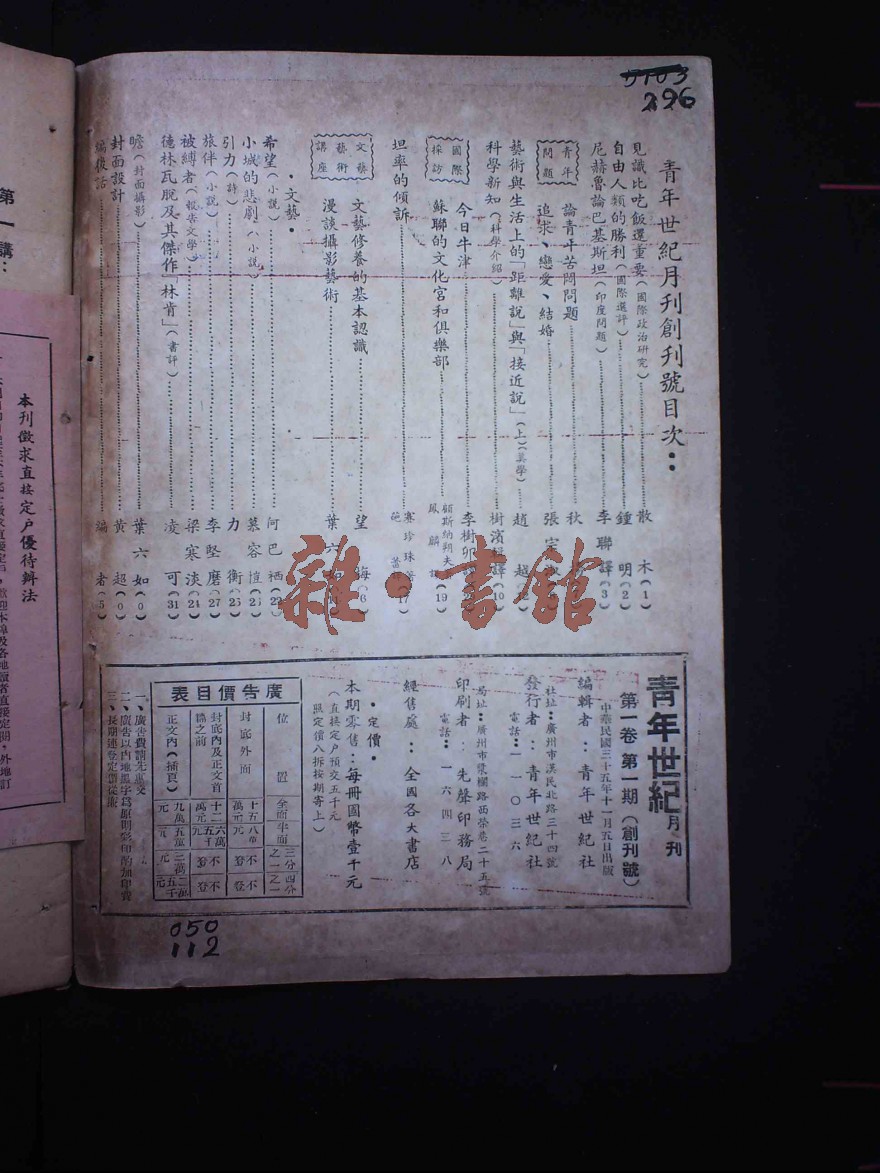 5103
296
青年世紀月刊創刊號目次：
見識比吃飯還重要（國際政治研究）散木（1）
自由人類的勝利（國際選評）鍾明（2）
尼赫魯論巴基斯坦（印度問題）李聯譯（3）
青年問題
論青年苦悶問題 秋
追求、戀愛、結婚 張
藝術與生活上的「距離說」與「接近說」（上）（美學）趙
科學新知（科學介紹）樹濱輯譯（10）
國際採訪
今日牛津 李樹
蘇聯的文化宮和俱樂部 顧斯納朔夫 鳳麟譯（19）
坦率的傾訴 賽珍珠著（17）
文藝藝術講座
文藝修養的基本認識 望
漫談攝影藝術 葉六如
•文藝•
希望（小說）何巴栖（22）
小城的悲劇（小說）慕容愷（23）
引力（詩）力衡（25）
旅伴（小說）李堅磨（27）
被縛者（報告文學）梁寒淡（24）
德林瓦脫及其傑作「林肯」（書評）凌可（31）
瞻（封面攝影）葉六如（0）
封面設計 黃超（0）
編後話 編者（5）
雜·書館
青年世紀月刊
第一卷第一期（創刊號）
中華民國三十五年十一月五日出版
編輯者：青年世紀社
社址：廣州市漢民北路三十四號
發行者：青年世紀社
電話：一一〇三六
印刷者：先聲印務局
局址：廣州市槳欄路西榮巷二十五號
電話：一六四三八
經售處：全國各大書店
•定價•
本期零售：每冊國幣壹千元
（直接定戶預交五千元
照定價八折按期寄上）
廣告價目表
位置 全面 半面 三分之一 四分之一
封底外面 十五萬元 八萬元 不登 不登
封底內及正文首篇之前 十二萬元 六萬五千元 不登 不登
正文內（插頁） 九萬元 五萬元 三萬元 二萬五千元
一、廣告費請先惠交
二、廣告以白地黑字為原則彩印酌加印費
三、長期連登定價從廉
050
112
第一講：
本刊徵求直接定戶優待辦法